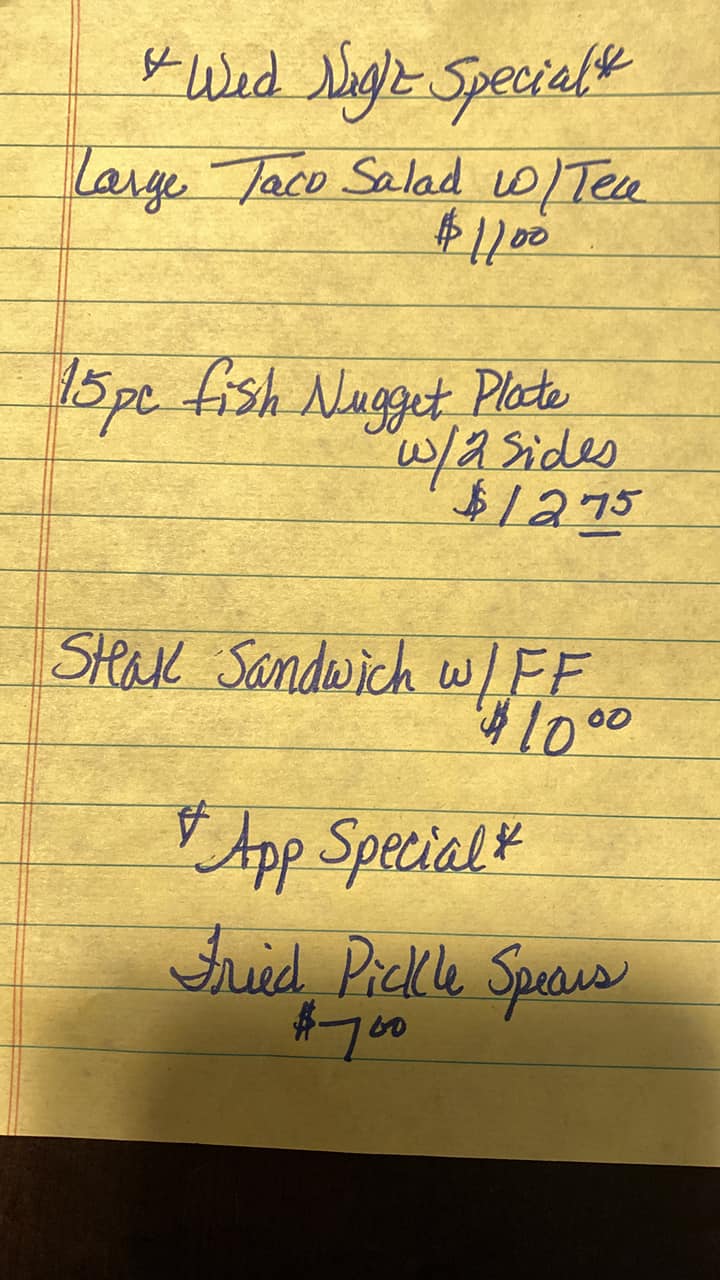 * Wed Night Special *
Large Taco Salad w/Tea
$11.00
15pc fish Nugget Plate
w/2 Sides
$12 75
Steak Sandwich w/FF
$10 00
* App Special *
Fried Pickle Spears
$7 00